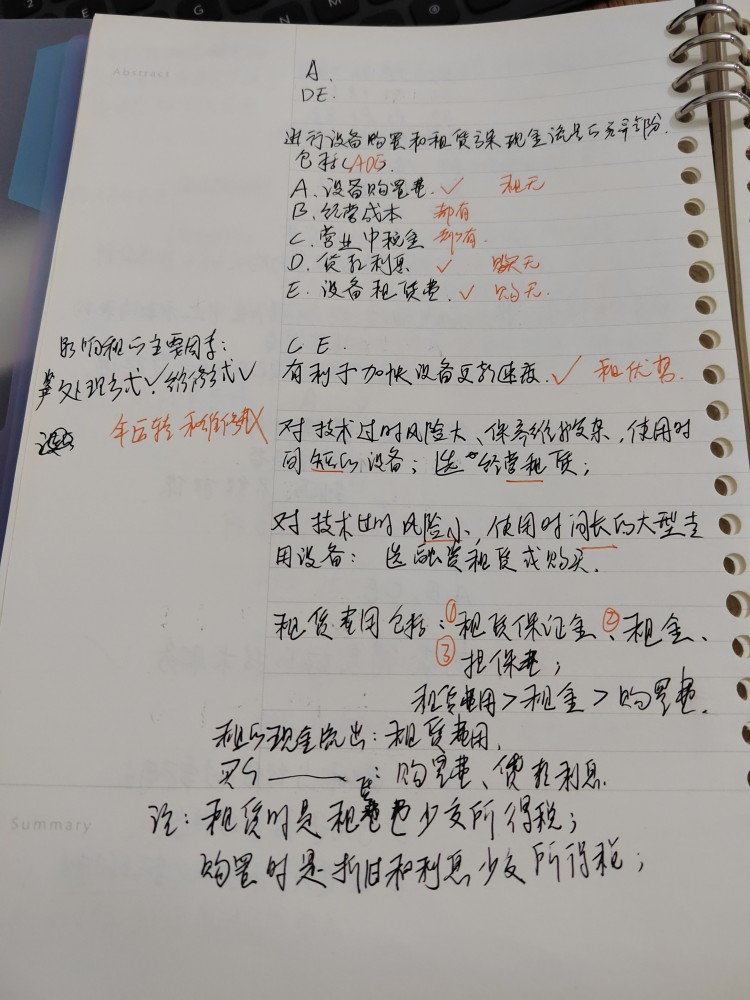 Abstract
A.
DE.
进行设备购置和租赁方案现金流量的差异部分
包括(ADE)
A. 设备购置费 ✓ 租无
B. 经营成本 都有
C. 营业中税金 都有
D. 贷款利息 ✓ 租无
E. 设备租赁费 ✓ 购无
影响租的主要因素:
处理方式✓ 维修方式✓
年运转和维修费X
C E.
有利于加快设备更新速度 ✓ 租优势.
对技术过时风险大、保养维护复杂,使用时
间短的设备;选"经营租赁;
对技术过时风险小,使用时间长的大型专
用设备:选融资租赁或购买.
租赁费用包括:①租赁保证金、②租金、
③担保费;
租赁费用>租金>购置费.
租的现金流出:租赁费用.
买 ——— :购置费、贷款利息.
注:租赁时是租赁费少交所得税;
购置时是折旧和利息少交所得税;
Summary